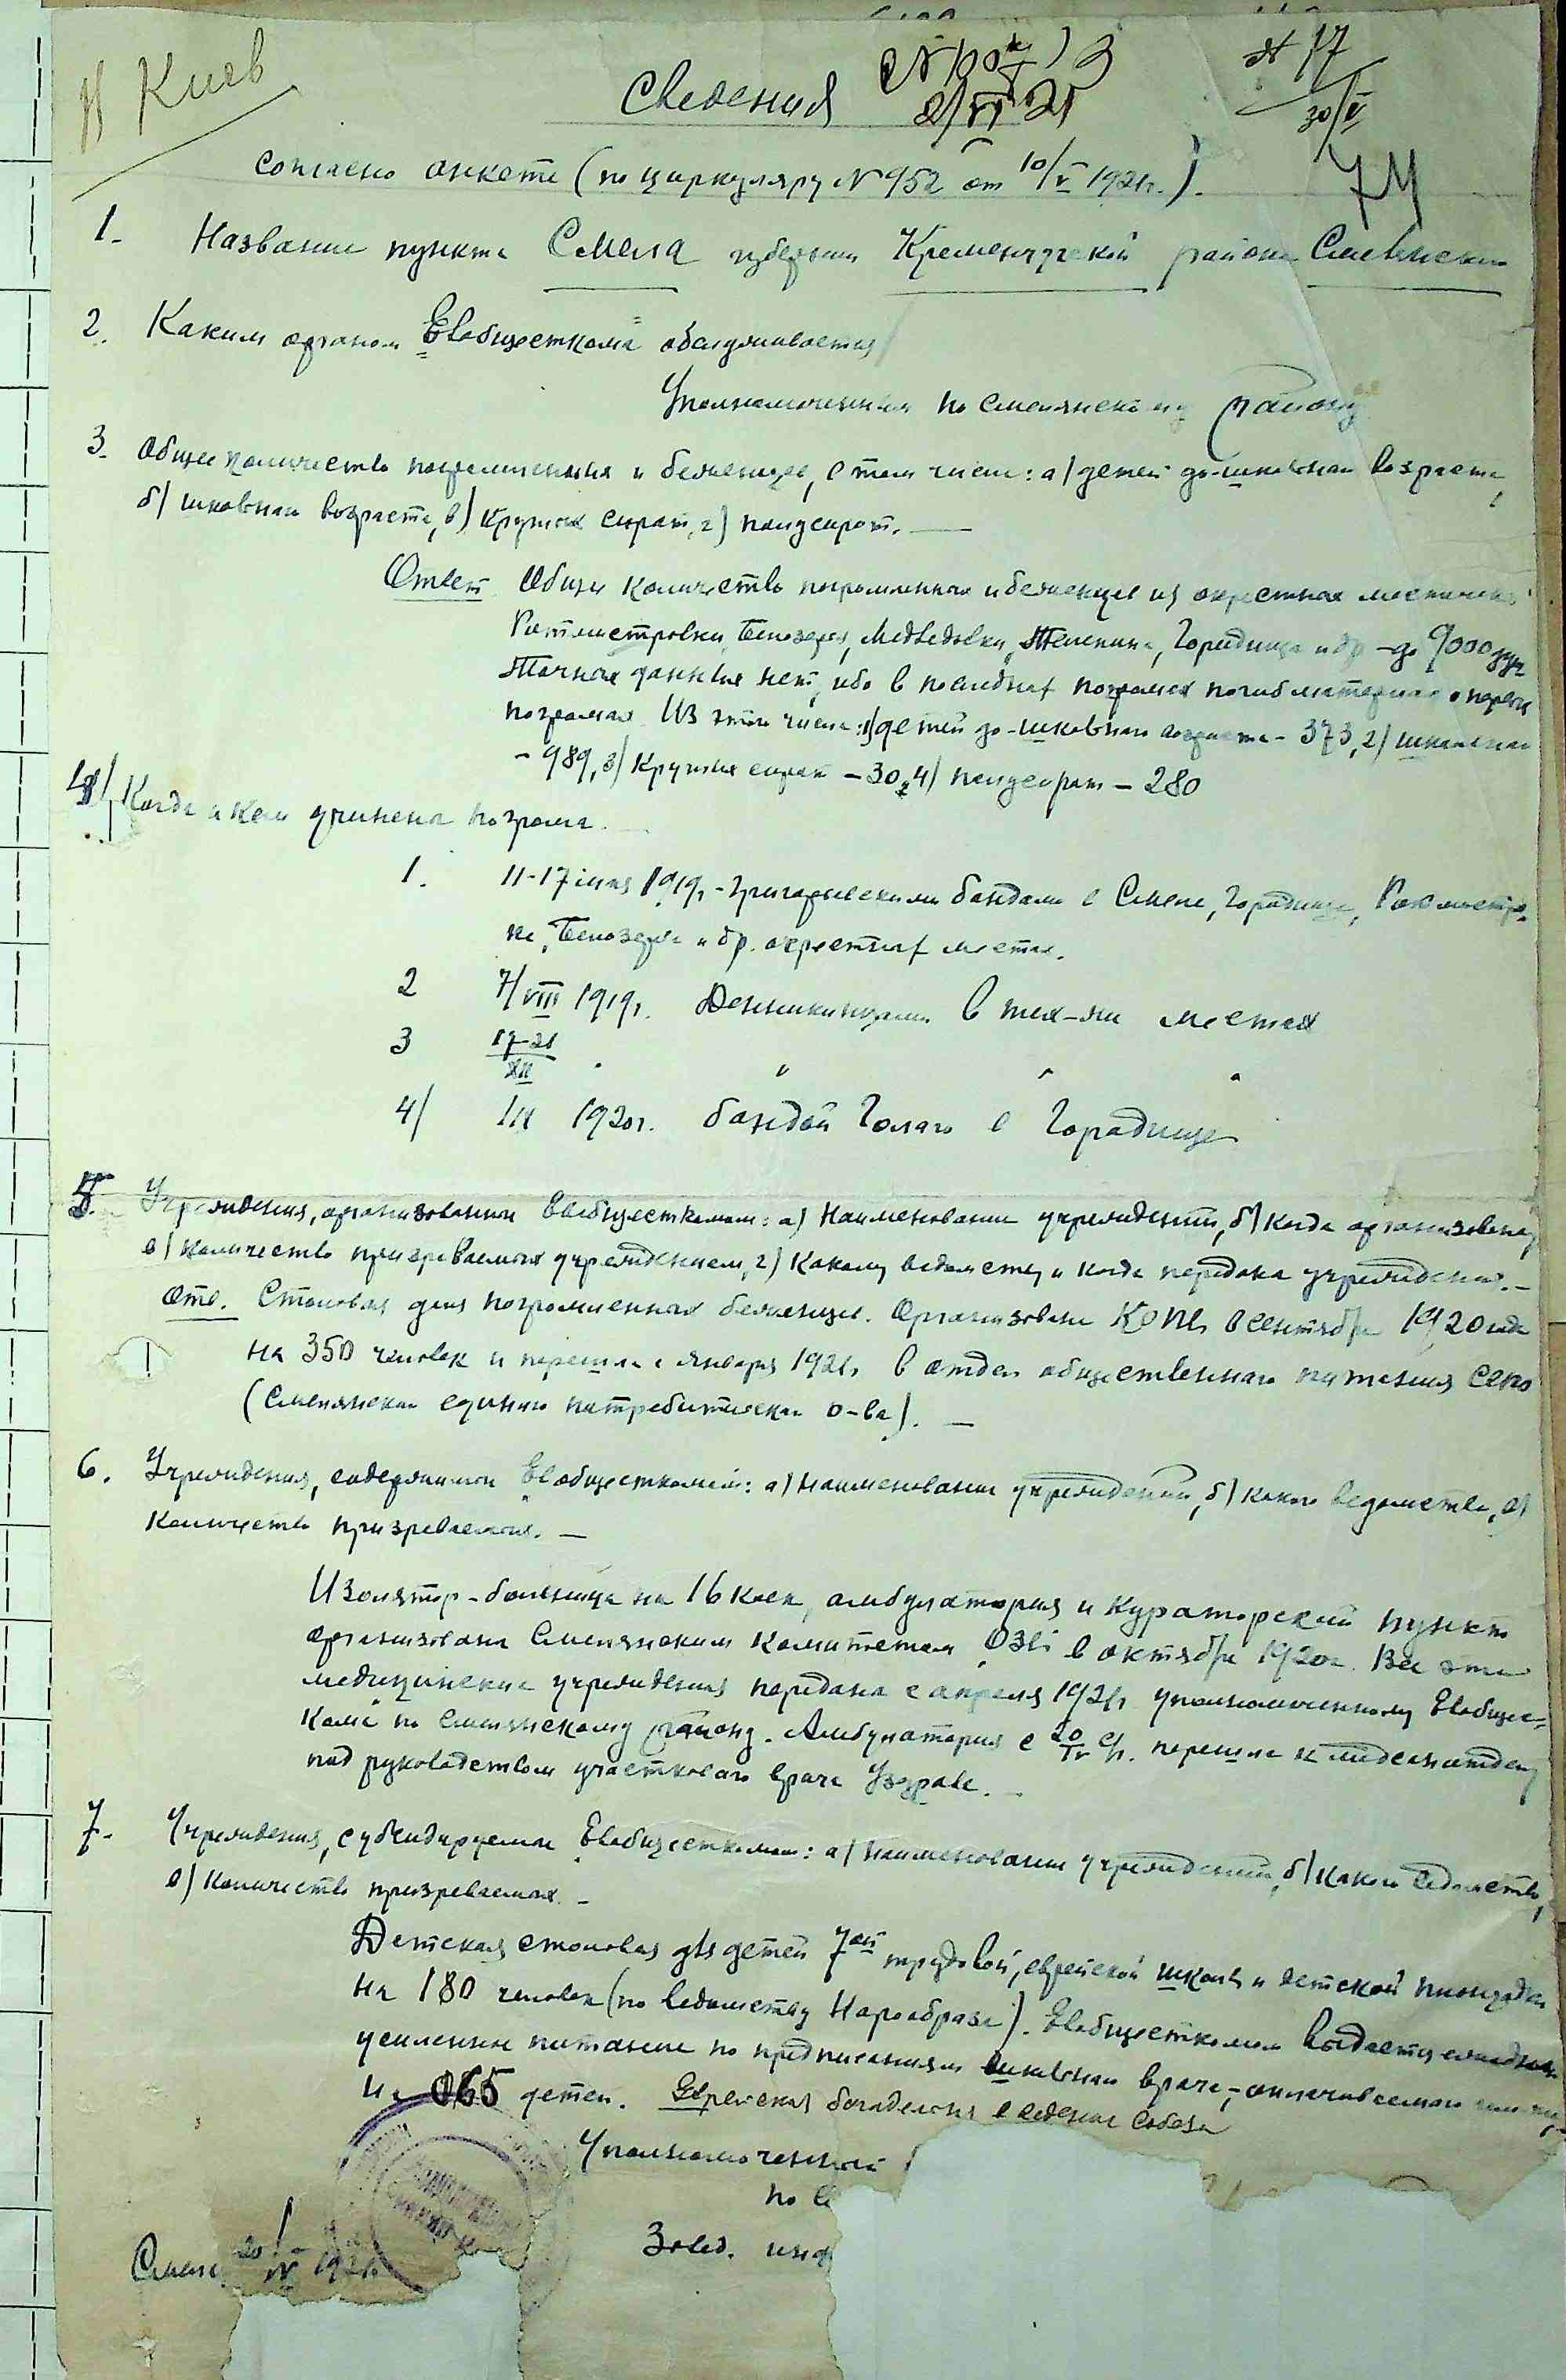 Киев
Сведения
2/VI 21
№ 17
30/V
74
согласно анкете (по циркуляру № 952 от 10/V 1921г.).
1. Название пункта Смела губернии Кременчугской района Смелянского
2. Каким органом Евобщесткома обслуживается
Уполномоченным по Смелянскому району
3. Общее количество погромленных и беженцев, в том числе: а) детей до-школьнаго возраста,
б) школьнаго возраста, в) круглых сирот, г) полусирот. —
Ответ. Общее количество погромленных и беженцев из окрестных местечек:
Ротмистровки, Белозерья, Медведовки, Телепина, Городища и др – до 9000 душ
Точных данных нет, ибо в последних погромах погиб материал о первых
погромах. Из этого числа: 1) детей до-школьнаго возраста – 373, 2) школьнаго
– 989, 3) Круглых сирот – 30, 4) полусирот – 280
4/ Когда и кем учинены погромы.
1. 11-17 мая 1919г. - Григорьевскими бандами в Смеле, Городище, Ротмистров-
ке, Белозерье и др. окрестных местах.
2 7/VIII 1919г. Деникинцами в тех-же местах
3 17-21/XII " " " "
4/ 1920г. бандой Голаго в Городище
5. Учреждения, организованные Евобщесткомом: а) Наименование учреждений, б) Когда организованы,
в) количество призреваемых учреждением, г) Какому ведомству и когда переданы учреждения. –
Отв. Столовая для погромленных беженцев. Организована в сентябре 1920 года
на 350 человек и перешла с января 1921г. в отдел общественнаго питания Сепо
(Смелянскаго единаго потребительскаго о-ва). —
6. Учреждения, содержимые Евобщесткомом: а) Наименование учреждений, б) какого ведомства, в)
Количество призреваемых. —
Изолятор-больница на 16 коек, амбулатория и кураторский пункт
организованы Смелянским Комитетом ОЗЕ в октябре 1920г. Все эти
медицинские учреждения переданы с апреля 1921г. уполномоченному Евобщест-
кома по Смелянскому району. Амбулатория с 20/IV с/г. перешла к
под руководством участковаго врача Уздрава. –
7. Учреждения, субсидируемые Евобщесткомом: а) Наименование учреждений, б) какого ведомства,
в) Количество призреваемых. –
Детская столовая для детей 7ой трудовой, еврейской школы и детской площадки
на 180 человек (по ведомству Наробраза). Евобщесткомом выдается ежедневно
усиленное питание по предписаниям школьнаго врача,
на 65 детей. Еврейская богадельня в ведении Собеза
Уполномоченный
по
Завед.
Смела 1921г.